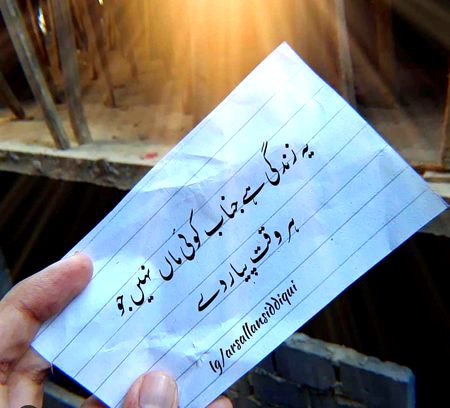 یہ زندگی ہے جناب کوئی ماں نہیں جو
ہر وقت پیار دے
Ig/arsallansiddiqui